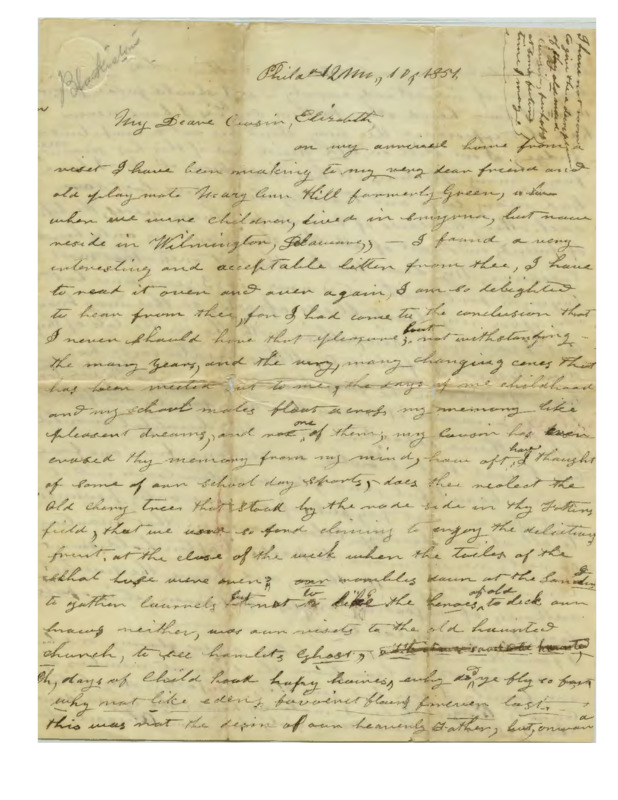 Blackiston
I have not room
to give thee a description
of
cousin, perhaps
at some future
time I may
Philad 12 Mo, 10, 1851.
My Deare Cousin, Elizabeth,
on my arrival home from a
viset I have been making to my very dear friend and
old playmate Mary Ann Hill formerly Green,
when we were children, lived in Smyrna, but now
reside in Wilmington, Delaware, — I found a very
interesting and acceptable letter from thee, I have
to read it over and over again, I am so delighted
to hear from thee, for I had come to the conclusion that
I never should have that pleasure, but not withstanding
the many years, and the very, many changing cenes that
has been meeted out to me, the days of me childhood
and my school mates float across my memory like
pleasent dreams, and not one of them, my cousin has
erased thy memory from my mind, how oft have I thought
of some of our school day sports, does thee reolect the
old cherry trees that stood by the rode side in thy Fathers
field, that we were so fond climing to enjoy the delicious
fruit, at the close of the week when the toiles of the
schhal huse were over, our rambles down at the
to gather laurrels but not to like the heroes of old to deck our
brows neither, was our visets to the old haunted
church, to see hamlets Ghost,
Oh, days of Child hood hapy houires, why do ye fly so fast
why not like eden, flours forever last,
this was not the desire of our heavenly Father, but, on